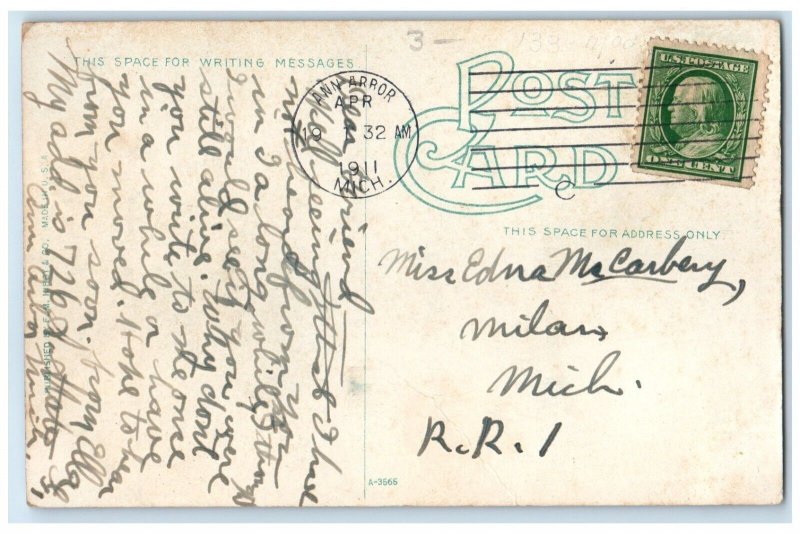 THIS SPACE FOR WRITING MESSAGES
Dear Friend
Well seeing that I have
not heard from you
in a long while I
I would see if you were
still alive. Why dont
you write to me once
in a while or have
you moved. Hope to hear
from you soon. from Ella
My add is 726 S. State St
Ann Arbor Mich.
& CO. MADE IN U.S.A.
3-
POST CARD
ANN ARBOR
APR
19
1 32 AM
1911
MICH.
U.S. POSTAGE
ONE CENT
THIS SPACE FOR ADDRESS ONLY
Miss Edna McCarbery,
Milan
Mich.
R.R. 1
A-3565